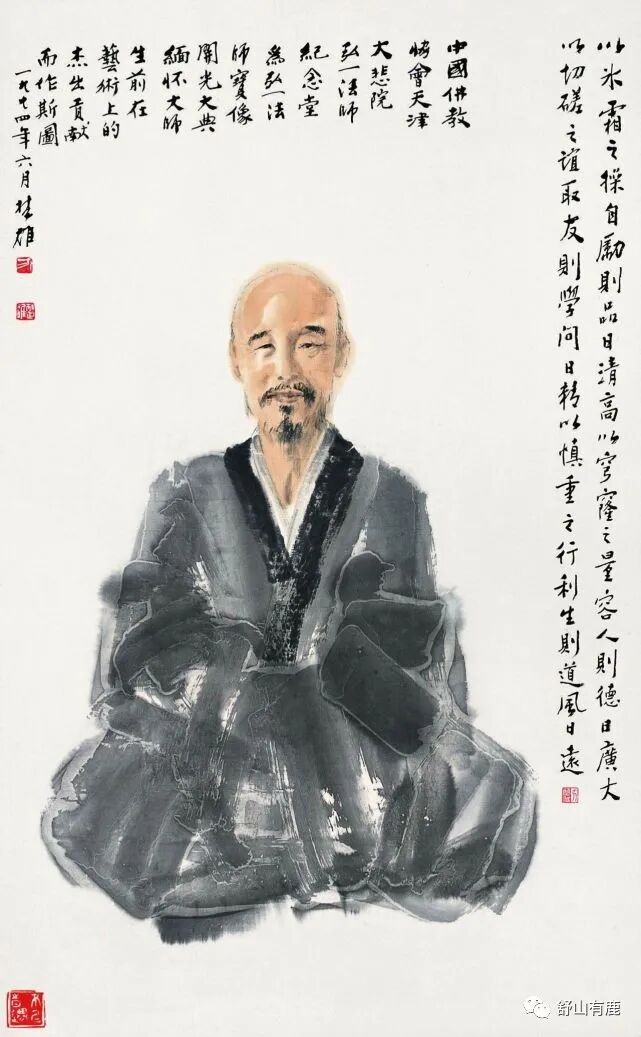 以冰霜之操自勵則品日清高以穹窿之量容人則德日廣大
以切磋之誼取友則學問日精以慎重之行利生則道風日遠
中國佛教
協會天津
大悲院
弘一法師
紀念堂
爲弘一法
師寶像
開光大典
緬懷大師
生前在
藝術上的
杰出貢獻
而作斯圖
一九九四年六月
舒山有鹿